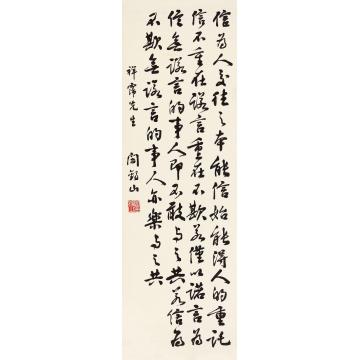 信為人交往之本能信始能得人的重託
信不重在諾言重在不欺若僅以諾言為
信無諾言的事人即不敢與之共若信為
不欺無諾言的事人亦樂與之共
祥霈先生
閻錫山